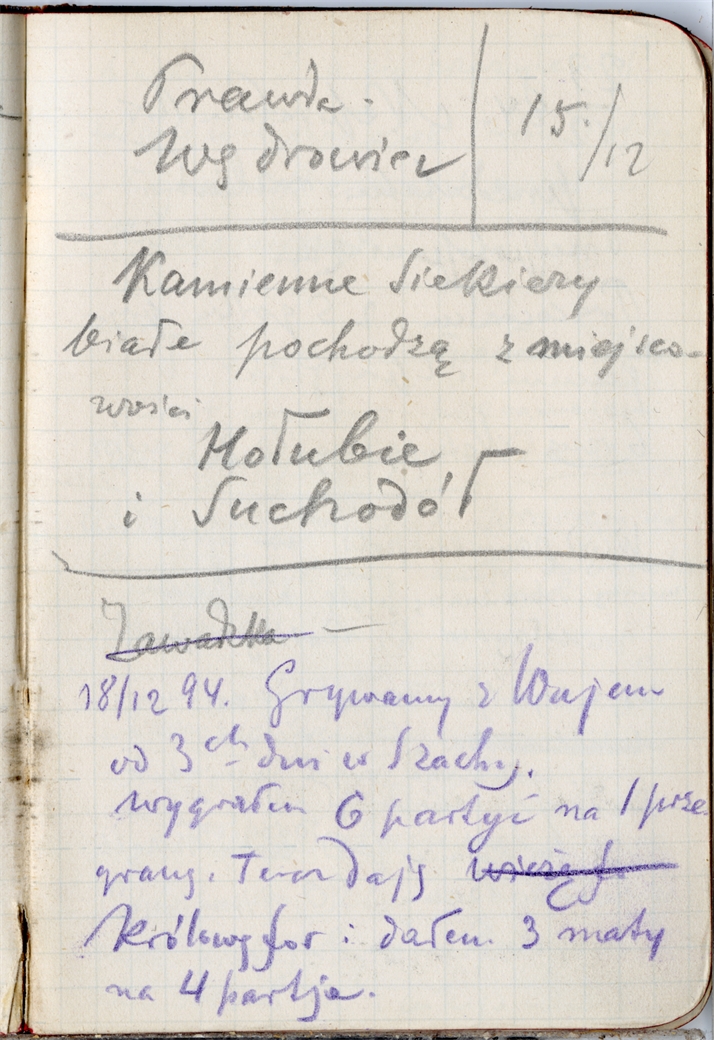 Prawda.
Wędrowiec
15./12
Kamienne siekiery
białe pochodzą z miejsco-
wości
Hołubie
i Suchodół
Zawadzka —
18/12 94. Grywamy z Wujem
od 3ch dni w szachy.
Wygrałem 6 partyi na 1 prze
graną. Teraz dają wieżę for
Królowę for i dałem 3 maty
na 4 partje.